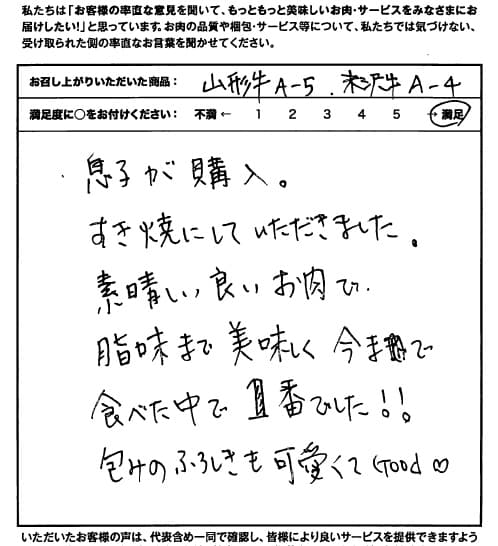 私たちは「お客様の率直な意見を聞いて、もっともっと美味しいお肉・サービスをみなさまにお
届けしたい!」と思っています。お肉の品質や梱包・サービス等について、私たちでは気づけない、
受け取られた側の率直なお言葉を聞かせてください。
お召し上がりいただいた商品: 山形牛A-5 . 米沢牛 A-4
満足度に○をお付けください: 不満 ← 1 2 3 4 5 → 満足
息子が購入。
すき焼にしていただきました。
素晴しい良いお肉で.
脂味まで美味しく今まで
食べた中で1番でした!!
包みのふろしきも可愛くてGood♡
いただいたお客様の声は、代表含め一同で確認し、皆様により良いサービスを提供できますよう